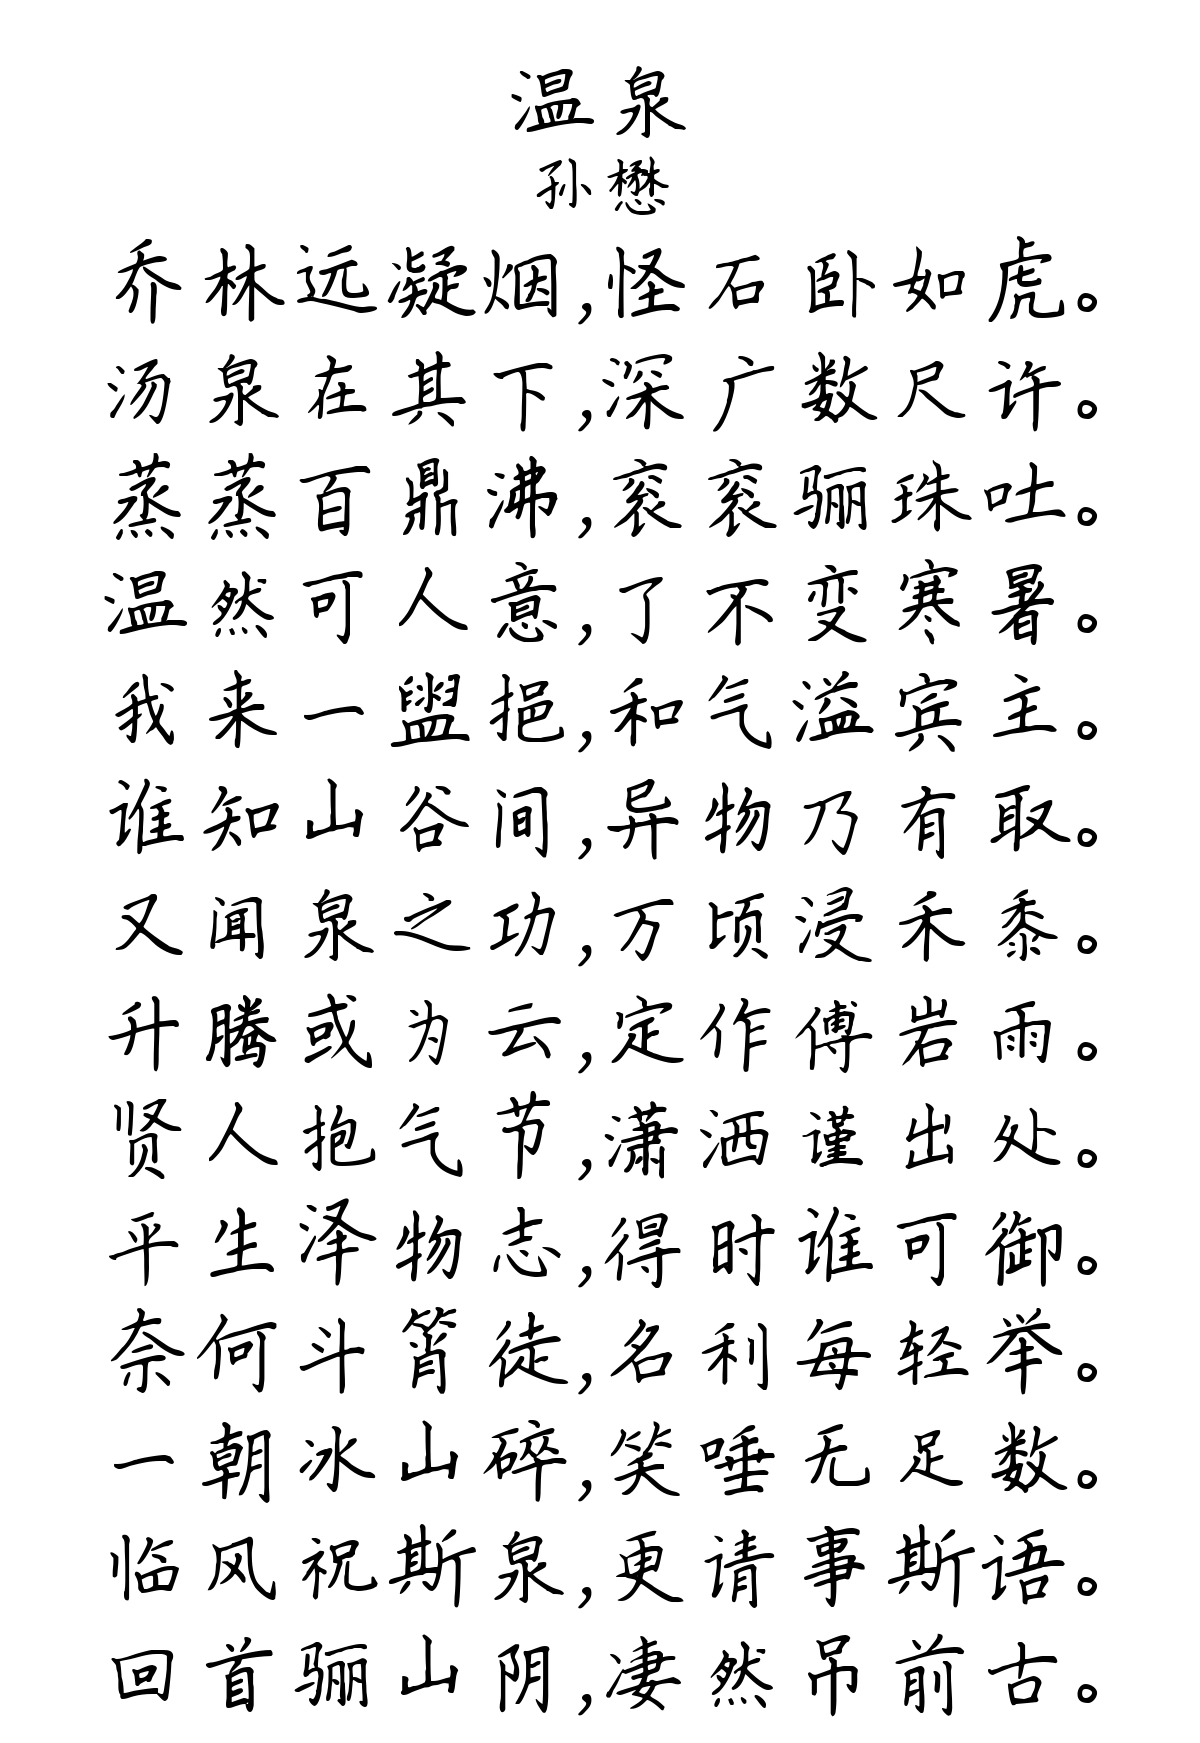 温泉
孙懋
乔林远凝烟,怪石卧如虎。
汤泉在其下,深广数尺许。
蒸蒸百鼎沸,衮衮骊珠吐。
温然可人意,了不变寒暑。
我来一盥挹,和气溢宾主。
谁知山谷间,异物乃有取。
又闻泉之功,万顷浸禾黍。
升腾或为云,定作傅岩雨。
贤人抱气节,潇洒谨出处。
平生泽物志,得时谁可御。
奈何斗筲徒,名利每轻举。
一朝冰山碎,笑唾无足数。
临风祝斯泉,更请事斯语。
回首骊山阴,凄然吊前古。